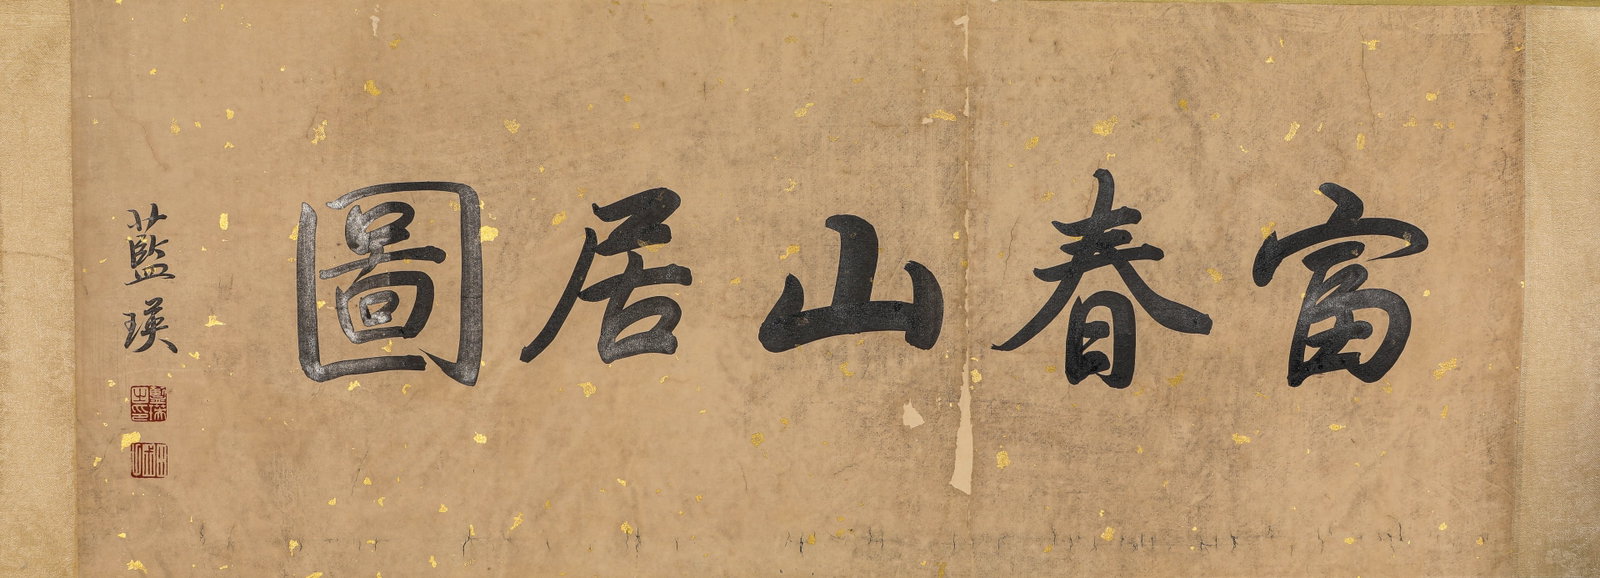 富春山居圖
藍瑛